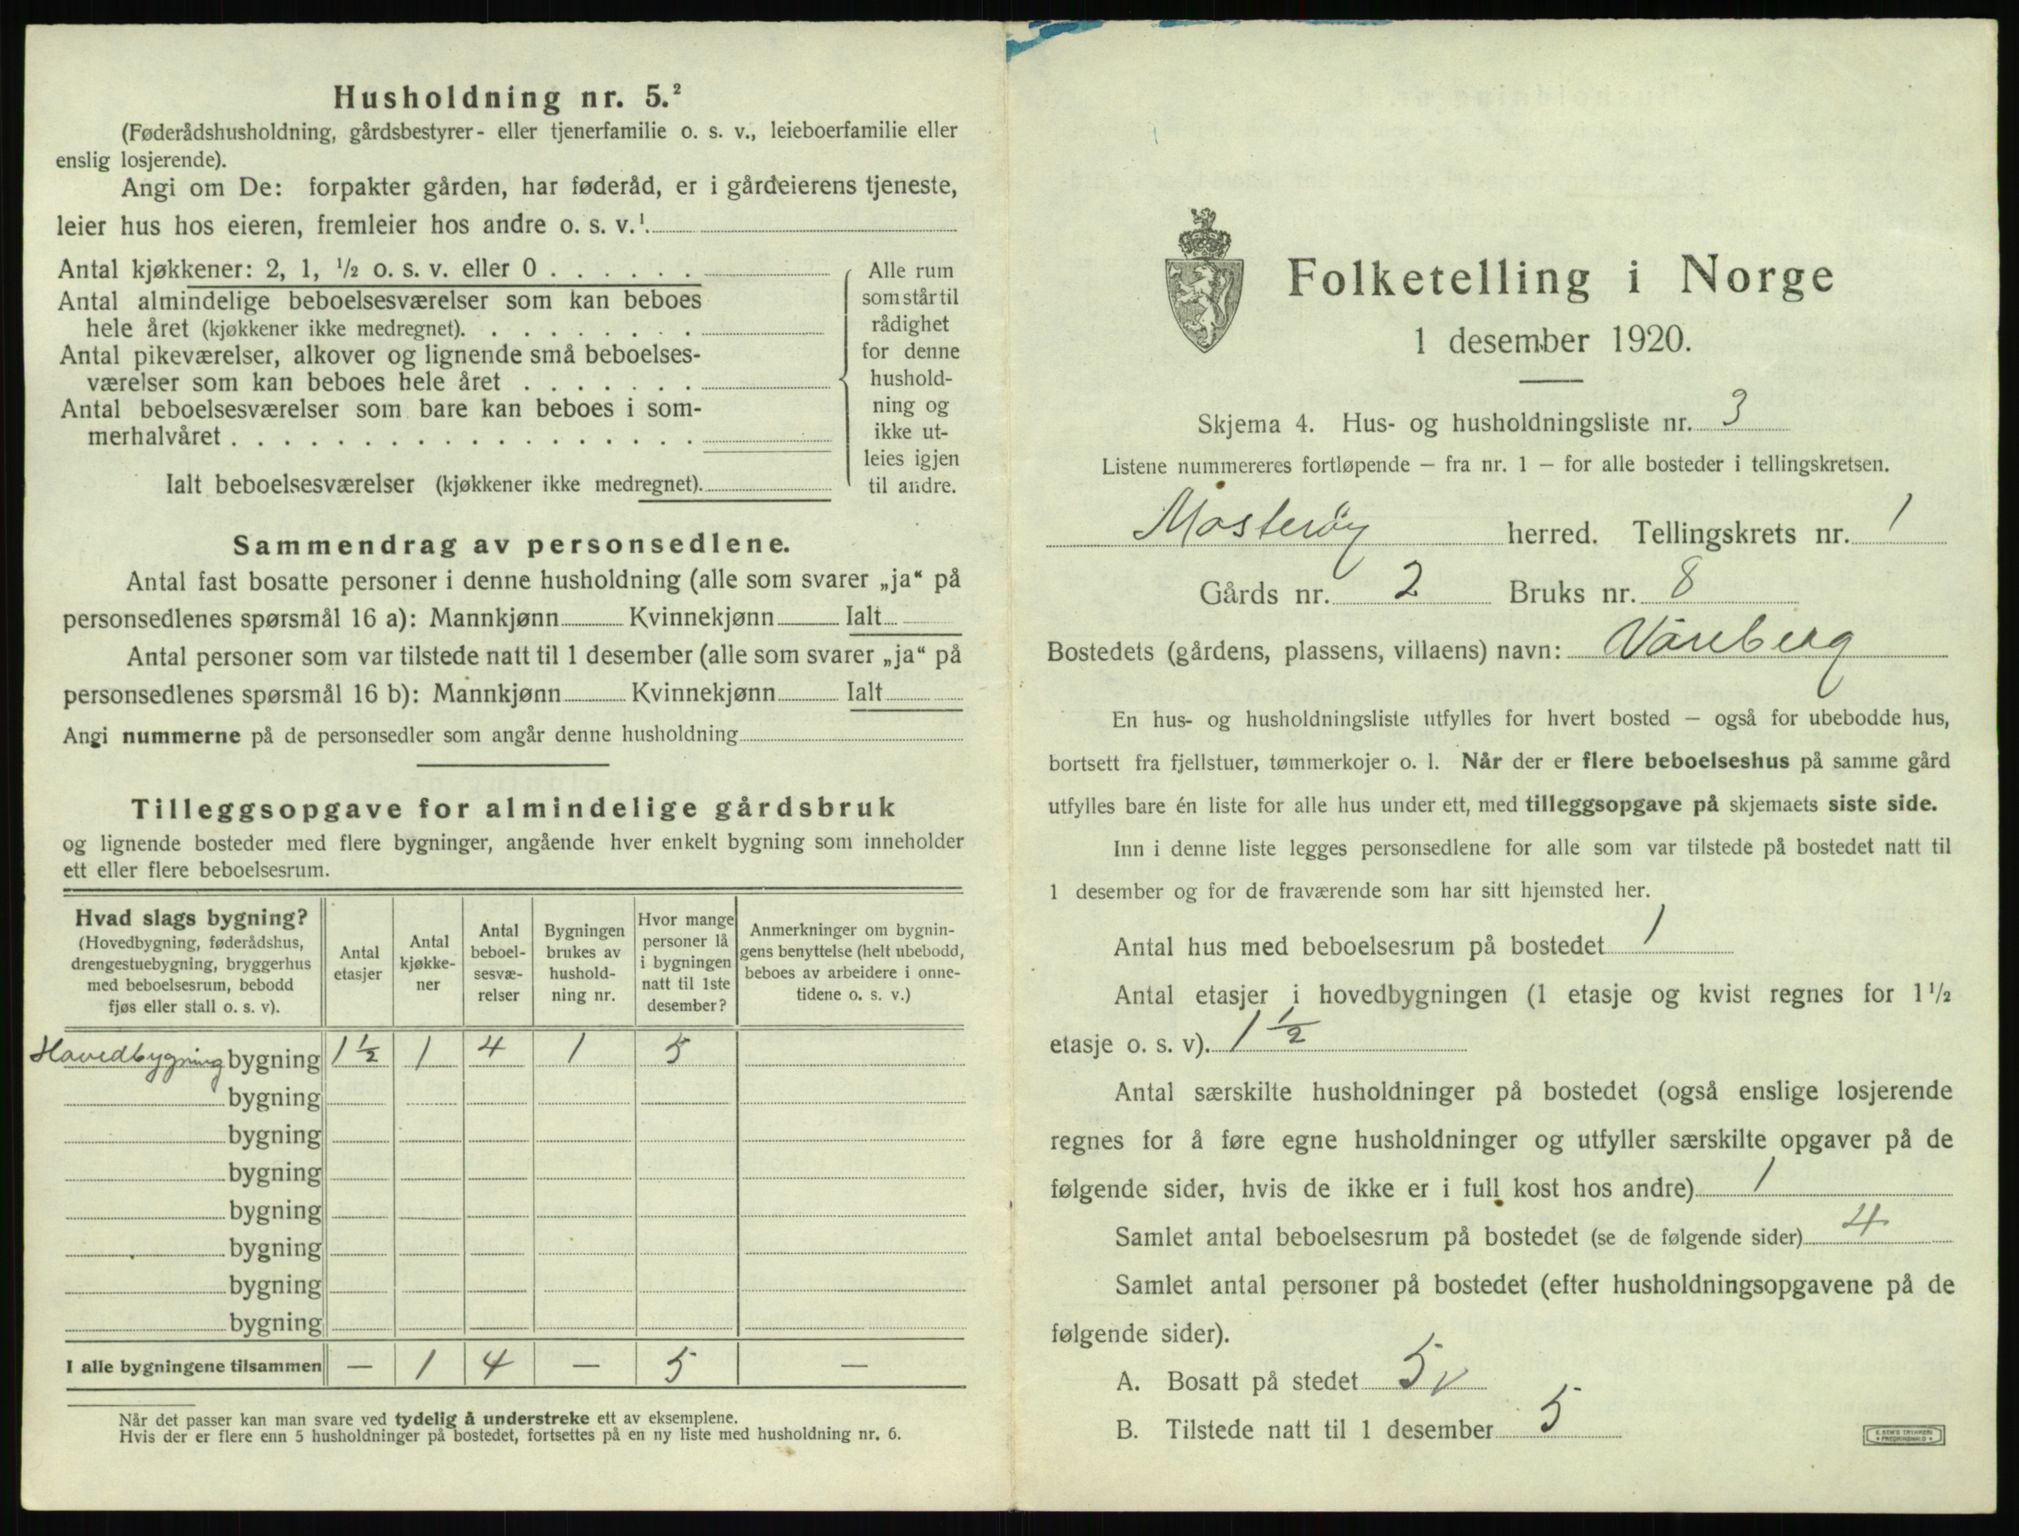 Husholdning nr. 5.²
(Føderådshusholdning, gårdsbestyrer- eller tjenerfamilie o. s. v., leieboerfamilie eller
enslig losjerende).
Angi om De: forpakter gården, har føderåd, er i gårdeierens tjeneste,
leier hus hos eieren, fremleier hos andre o. s. v.¹
Antal kjøkkener: 2, 1, ½ o. s. v. eller 0
Antal almindelige beboelsesværelser som kan beboes
hele året (kjøkkener ikke medregnet).
Antal pikeværelser, alkover og lignende små beboelses-
værelser som kan beboes hele året
Antal beboelsesværelser som bare kan beboes i som-
merhalvåret
Ialt beboelsesværelser (kjøkkener ikke medregnet).
Alle rum
som står til
rådighet
for denne
hushold-
ning og
ikke ut-
leies igjen
til andre.
Sammendrag av personsedlene.
Antal fast bosatte personer i denne husholdning (alle som svarer „ja“ på
personsedlenes spørsmål 16 a): Mannkjønn Kvinnekjønn Ialt
Antal personer som var tilstede natt til 1 desember (alle som svarer „ja“ på
personsedlenes spørsmål 16 b): Mannkjønn Kvinnekjønn Ialt
Angi nummerne på de personsedler som angår denne husholdning
Tilleggsopgave for almindelige gårdsbruk
og lignende bosteder med flere bygninger, angående hver enkelt bygning som inneholder
ett eller flere beboelsesrum.
Hvad slags bygning?
(Hovedbygning, føderådshus,
drengestuebygning, bryggerhus
med beboelsesrum, bebodd
fjøs eller stall o. s. v).
Antal
etasjer
Antal
kjøkke-
ner
Antal
beboel-
sesvæ-
relser
Bygningen
brukes av
hushold-
ning nr.
Hvor mange
personer lå
i bygningen
natt til 1ste
desember?
Anmerkninger om bygnin-
gens benyttelse (helt ubebodd,
beboes av arbeidere i onne-
tidene o. s. v.)
Hovedbygning bygning 1 ½ 1 4 1 5
bygning
bygning
bygning
bygning
bygning
bygning
bygning
I alle bygningene tilsammen — 1 4 — 5 —
Når det passer kan man svare ved tydelig å understreke ett av eksemplene.
Hvis der er flere enn 5 husholdninger på bostedet, fortsettes på en ny liste med husholdning nr. 6.
Folketelling i Norge
1 desember 1920.
Skjema 4. Hus- og husholdningsliste nr. 3
Listene nummereres fortløpende – fra nr. 1 – for alle bosteder i tellingskretsen.
Mosterøy herred. Tellingskrets nr. 1
Gårds nr. 2 Bruks nr. 8
Bostedets (gårdens, plassens, villaens) navn: Vareberg
En hus- og husholdningsliste utfylles for hvert bosted – også for ubebodde hus,
bortsett fra fjellstuer, tømmerkojer o. l. Når der er flere beboelseshus på samme gård
utfylles bare én liste for alle hus under ett, med tilleggsopgave på skjemaets siste side.
Inn i denne liste legges personsedlene for alle som var tilstede på bostedet natt til
1 desember og for de fraværende som har sitt hjemsted her.
Antal hus med beboelsesrum på bostedet 1
Antal etasjer i hovedbygningen (1 etasje og kvist regnes for 1½
etasje o. s. v). 1 ½
Antal særskilte husholdninger på bostedet (også enslige losjerende
regnes for å føre egne husholdninger og utfyller særskilte opgaver på de
følgende sider, hvis de ikke er i full kost hos andre) 1
Samlet antal beboelsesrum på bostedet (se de følgende sider) 4
Samlet antal personer på bostedet (efter husholdningsopgavene på de
følgende sider).
A. Bosatt på stedet 5 v
B. Tilstede natt til 1 desember 5